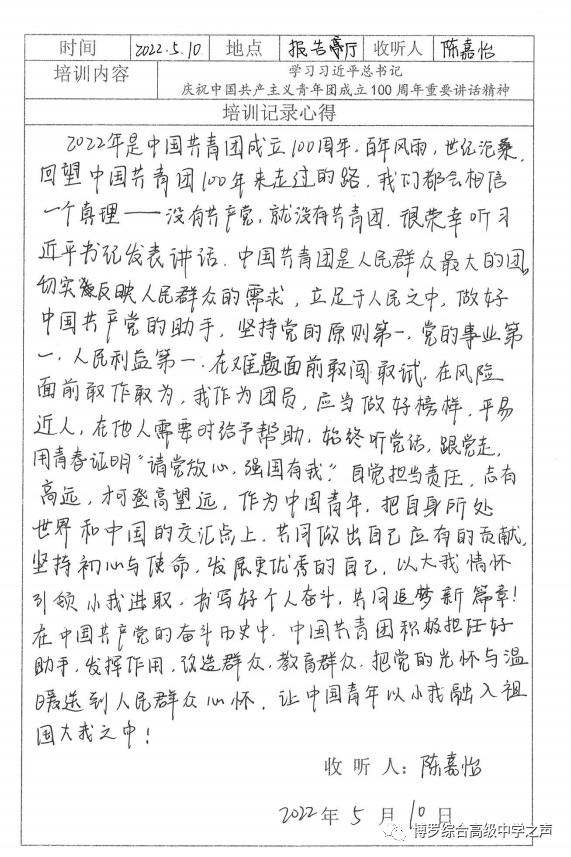 时间 2022.5.10 地点 报告厅 收听人 陈嘉怡
培训内容 学习习近平总书记
庆祝中国共产主义青年团成立100周年重要讲话精神
培训记录心得
2022年是中国共青团成立100周年.百年风雨,世纪沧桑,
回望中国共青团100年来走过的路,我们都会相信
一个真理——没有共产党,就没有共青团.很荣幸听习
近平书记发表讲话.中国共青团是人民群众最大的团,
切实反映人民群众的需求,立足于人民之中,做好
中国共产党的助手,坚持党的原则第一,党的事业第
一,人民利益第一.在难题面前敢闯敢试,在风险
面前敢作敢为,我作为团员,应当做好榜样,平易
近人,在他人需要时给予帮助,始终听党话,跟党走,
用青春证明“请党放心,强国有我”.自觉担当责任,志有
高远,才可登高望远,作为中国青年,把自身所处
世界和中国的交汇点上,共同做出自己应有的贡献,
坚持初心与使命,发展更优秀的自己,以大我情怀
引领小我进取,书写好个人奋斗,共同追梦新篇章!
在中国共产党的奋斗历史中,中国共青团积极担任好
助手,发挥作用,造群众,教育群众,把党的光怀与温
暖送到人民群众心怀,让中国青年以小我融入祖
国大我之中!
收听人:陈嘉怡
2022年5月10日
博罗综合高级中学之声